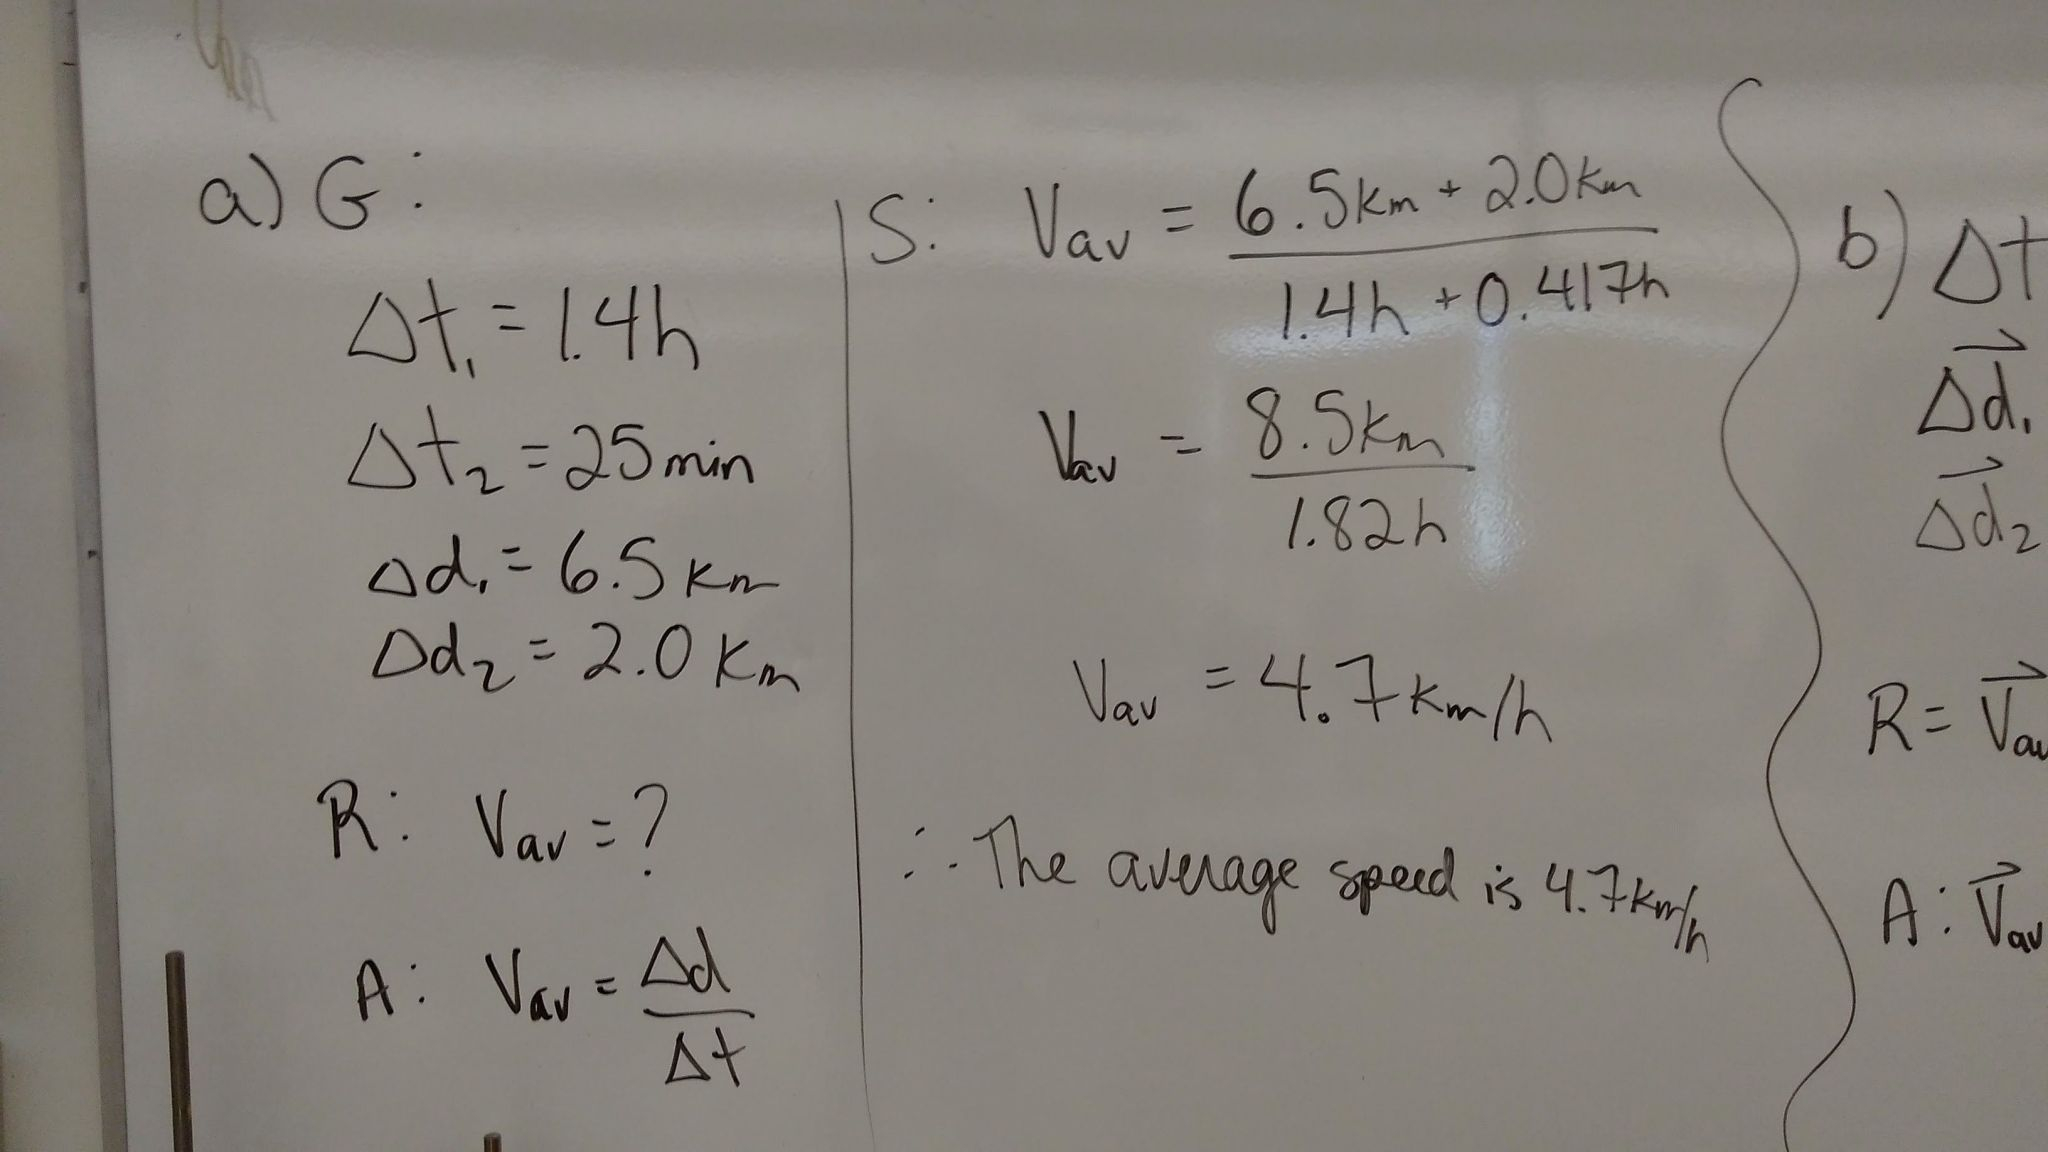 a) G:
Δt₁ = 1.4h
Δt₂ = 25min
Δd₁ = 6.5 km
Δd₂ = 2.0 km
R: Vav = ?
A: Vav = Δd
Δt
S: Vav = 6.5km + 2.0km
1.4h + 0.417h
Vav = 8.5km
1.82h
Vav = 4.7 km/h
∴ The average speed is 4.7km/h
b) Δt
Δd⃗₁
Δd⃗₂
R= V⃗av
A: V⃗av